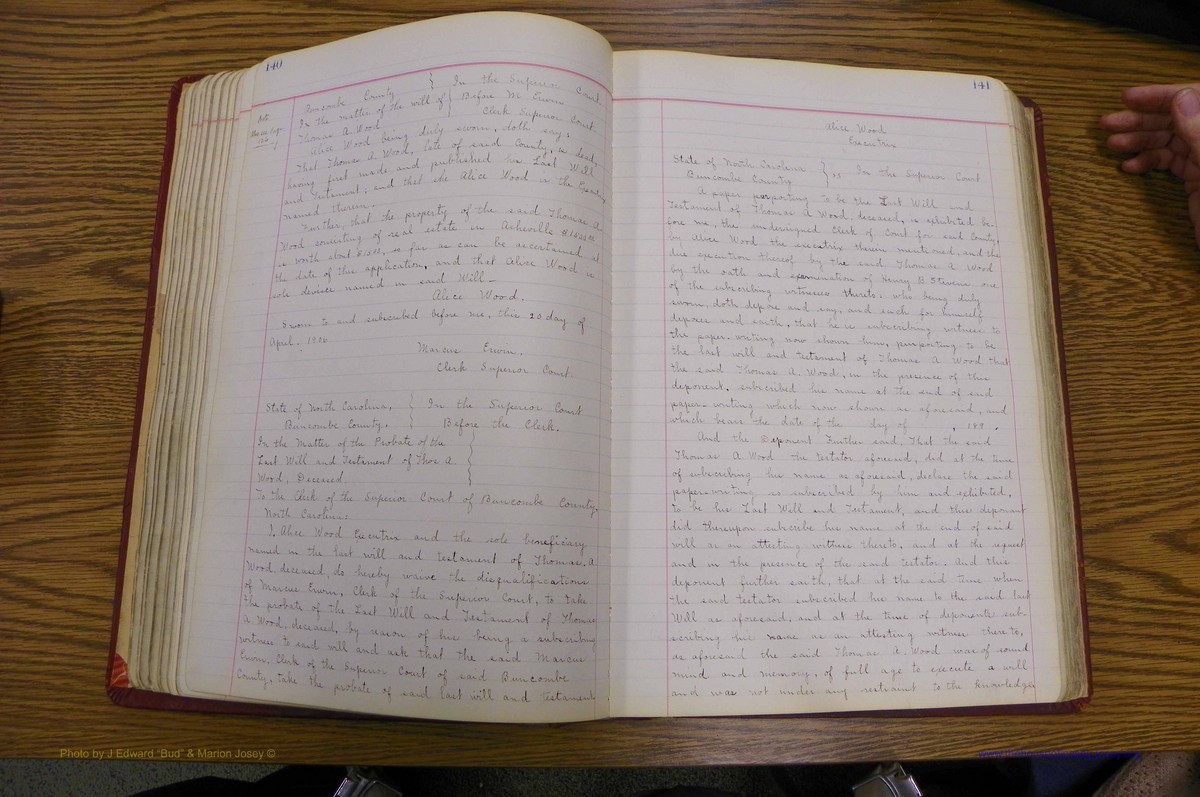 140
Buncombe County } In the Superior Court
In the matter of the will of } Before M Erwin
Thomas A. Wood } Clerk Superior Court.
Alice Wood being duly sworn, doth say:
That Thomas A. Wood, late of said County, is dead,
having first made and published his Last Will
and Testament; and that she Alice Wood is the Executrix
named therein.
Further, that the property of the said Thomas A.
Wood consisting of real estate in Asheville
is worth about so far as can be ascertained at
the date of this application, and that Alice Wood is
sole devisee named in said Will_
Alice Wood.
Sworn to and subscribed before me, this 20 day of
April. 1906
Marcus Erwin.
Clerk Superior Court.
State of North Carolina, } In the Superior Court
Buncombe County. } Before the Clerk.
In the Matter of the Probate of the
Last Will and Testament of Thos A.
Wood, Deceased
To the Clerk of the Superior Court of Buncombe County.
North Carolina:
I, Alice Wood Executrix and the sole beneficiary
named in the last will and testament of Thomas. A
Wood deceased, do hereby waive the disqualifications
of Marcus Erwin, Clerk of the Superior Court, to take
the probate of the Last Will and Testament of Thomas
A Wood, deceased, by reason of his being a subscribing
witness to said will and ask that the said Marcus
Erwin, Clerk of the Superior Court of said Buncombe
County, take the probate of said last will and testament
141
Alice Wood
Executrix
State of North Carolina } ss In the Superior Court
Buncombe County
A paper purporting to be the Last Will and
Testament of Thomas A Wood deceased, is exhibited be
fore me, the undersigned Clerk of Court for said County,
by Alice Wood the executrix therein mentioned, and the
due execution thereof by the said Thomas A Wood
by the oath and examination of Henry B Stevens one
of the subscribing witnesses thereto: who being duly
sworn, doth depose and say, and each for himself
deposes and saith, that he is subscribing witness to
the paper-writing now shown him, purporting to be
the last will and testament of Thomas A Wood that
the said Thomas A. Wood, in the presence of this
deponent. subscribed his name at the end of said
paper-writing which now shown as aforesaid, and
which bears the date of the day of , 189 .
And the Deponent Further said, That the said
Thomas A Wood the testator aforesaid, did at the time
of subscribing his name, as aforesaid, declare the said
paper-writing so subscribed by him and exhibited,
to be his Last Will and Testament, and this deponent
did thereupon subscribe his name at the end of said
will as an attesting witness thereto, and at the request
and in the presence of the said testator. And this
deponent further saith, that at the said time when
the said testator subscribed his name to the said last
Will as aforesaid, and at the time of deponents sub-
scribing his name as an attesting witness thereto,
as aforesaid the said Thomas A Wood was of sound
mind and memory, of full age to execute a will
and was not under any restraint to the knowledge
Photo by J Edward "Bud" & Marion Josey ©